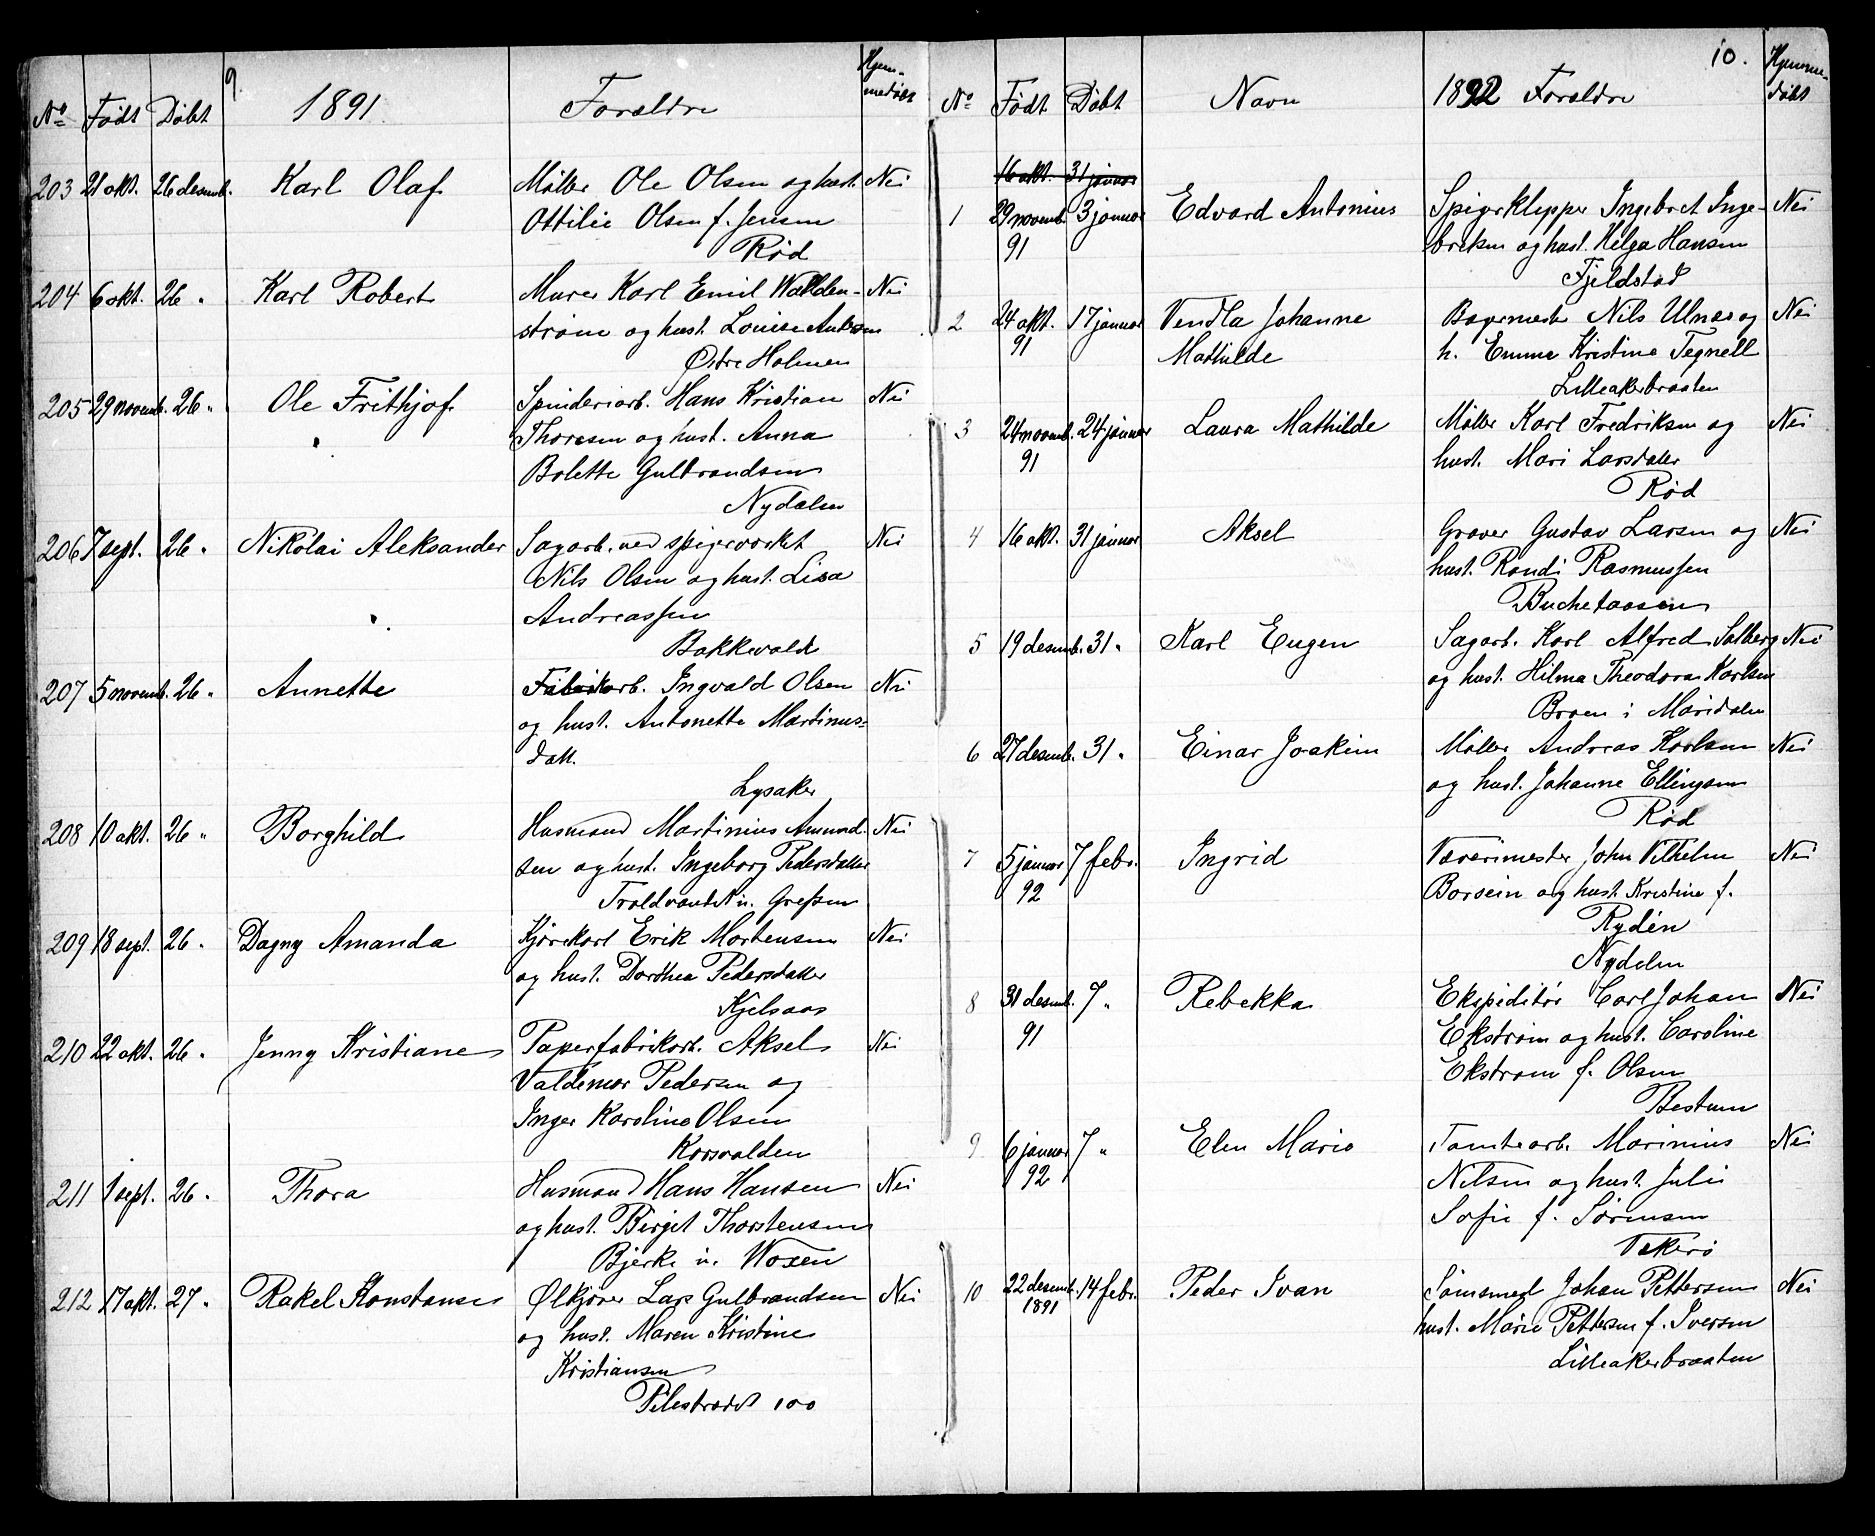 9
Nº Født Døbt 1891 Forældre Hjem-
medøbt
203 21 okt. 26 desemb. Karl Olaf Møller Ole Olsen og hust. Nei
Ottilie Olsen f. Jensen
Rød
204 6 okt. 26 " Karl Robert Murer Karl Emil Wallden- Nei
strøm og hust. Louise Andersen
Østre Holmen
205 29 novemb. 26 " Ole Frithjof Spinderiarb. Hans Kristian Nei
Thoresen og hust. Anna
Bolette Gulbrandsen
Nydalen
206 7 sept. 26 " Nikolai Aleksander Sagarb. ved spigerverket Nei
Nils Olsen og hust. Lisa
Andreassen
Bakkevold
207 5 novemb. 26 " Annette Fabrikarb. Ingvald Olsen Nei
og hust. Antonette Martinus-
datt.
Lysaker
208 10 okt. 26 " Borghild Husmand Martinius Amund- Nei
sen og hust. Ingeborg Pedersdatter
Troldvandet u. Grefsen
209 18 sept. 26 " Dagny Amanda Kjørekarl Erik Mortensen Nei
og hust. Dorthea Pedersdatter
Kjelsaas
210 22 okt. 26 " Jenny Kristiane Papirfabrikarb. Aksel Nei
Valdemar Pedersen og
Inger Karoline Olsen
Korsvolden
211 1 sept. 26 " Thora Husmand Hans Hansen Nei
og hust. Birgit Thorstensen
Bjerke u. Woxen
212 17 okt. 27 " Rakel Konstanse Ølkjører Lars Gulbrandsen Nei
og hust. Maren Kristine
Kristiansen
Pilestrædet 100
10.
Nº Født Døbt Navn 1892 Forældre Hjemme-
døbt
16 okt. 31 januar
1 29 novemb. 3 januar Edvard Antonius Spigerklipper Ingebret Inge- Nei
91 bretsen og hust. Helga Hansen
Fjeldstad
2 24 okt. 17 januar Vendla Johanne Bagermester Nils Ulnæs og Nei
91 Mathilde h. Emma Kristine Tegnell
Lilleakerbraaten
3 24 novemb. 24 januar Laura Mathilde Møller Karl Fredriksen og Nei
91 hust. Mari Larsdatter
Rød
4 16 okt. 31 januar Aksel Graver Gustav Larsen og Nei
hust. Randi Rasmussen
Buchetaasen
5 19 desemb. 31 " Karl Eugen Sagarb. Karl Alfred Solberg Nei
og hust. Hilma Theodora Karlsen
Braen i Maridalen
6 27 desemb. 31 " Einar Joakim Møller Andreas Karlsen Nei
og hust. Johanne Ellingsen
Rød
7 5 januar 7 febr. Ingrid Væverimester John Vilhelm Nei
92 Borsein og hust. Kristine f.
Rydén
Nydalen
8 31 desemb. 7 " Rebekka Ekspeditør Carl Johan Nei
91 Ekstrøm og hust. Caroline
Ekstrøm f. Olsen
Bestum
9 6 januar 7 " Elen Marie Tomtearb. Marinius Nei
92 Nilsen og hust. Julie
Sofie f. Sørensen
Vækerø
10 22 desemb. 14 febr. Peder Ivan Sømsmed Johan Pettersen Nei
1891 hust. Marie Pettersen f. Iversen
Lilleakerbraaten